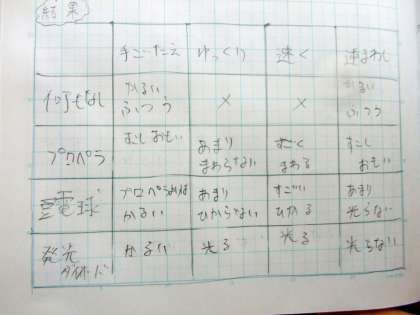 結果
手ごたえ ゆっくり 速く 逆まわし
何もなし かるい ふつう × × かるい ふつう
プロペラ すこしおもい あまりまわらない すごくまわる すこしおもい
豆電球 プロペラよりはかるい あまりひからない すごいひかる あまり光らない
発光ダイオード かるい 光る 光る 光らない